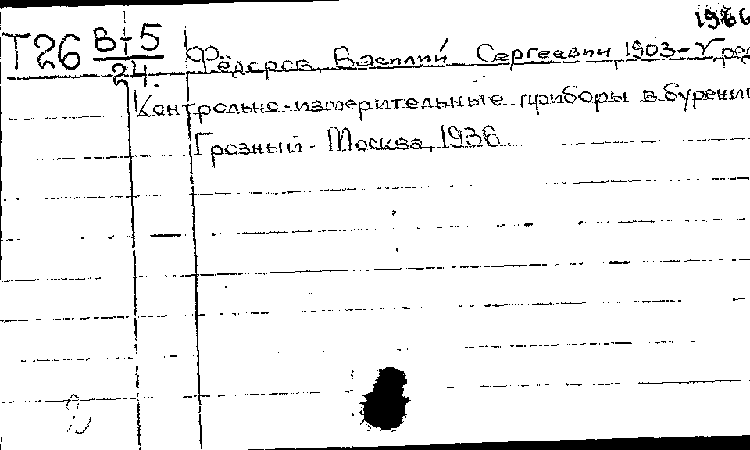 1966
Т26 В-5 Фёдоров, Василий Сергеевич, 1903- ред
24.
Контрольно-измерительные приборы в бурении
Грозный - Москва, 1936
2